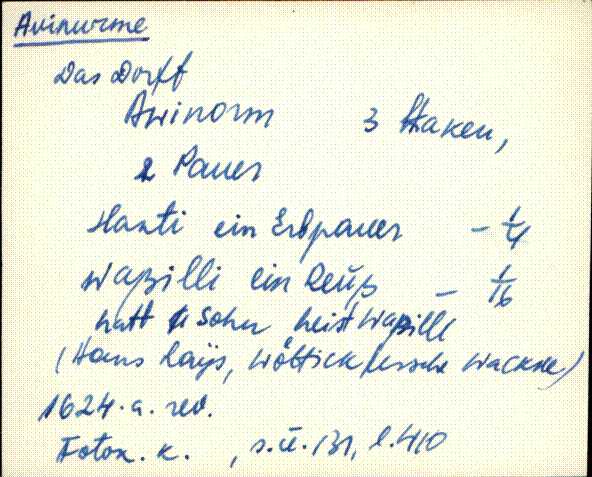 Avinurme
Das Dorff
Awinorm 3 Haken,
2 Pauer
Hanti ein Erbpauer - 1/4
Waßilli ein Reuß - 1/16
hatt 1 Sohn heist Waßilli
(Hans Rays, Wöttick
1624. a. rev.
Fotok. k. , s.ü. 131, l. 410